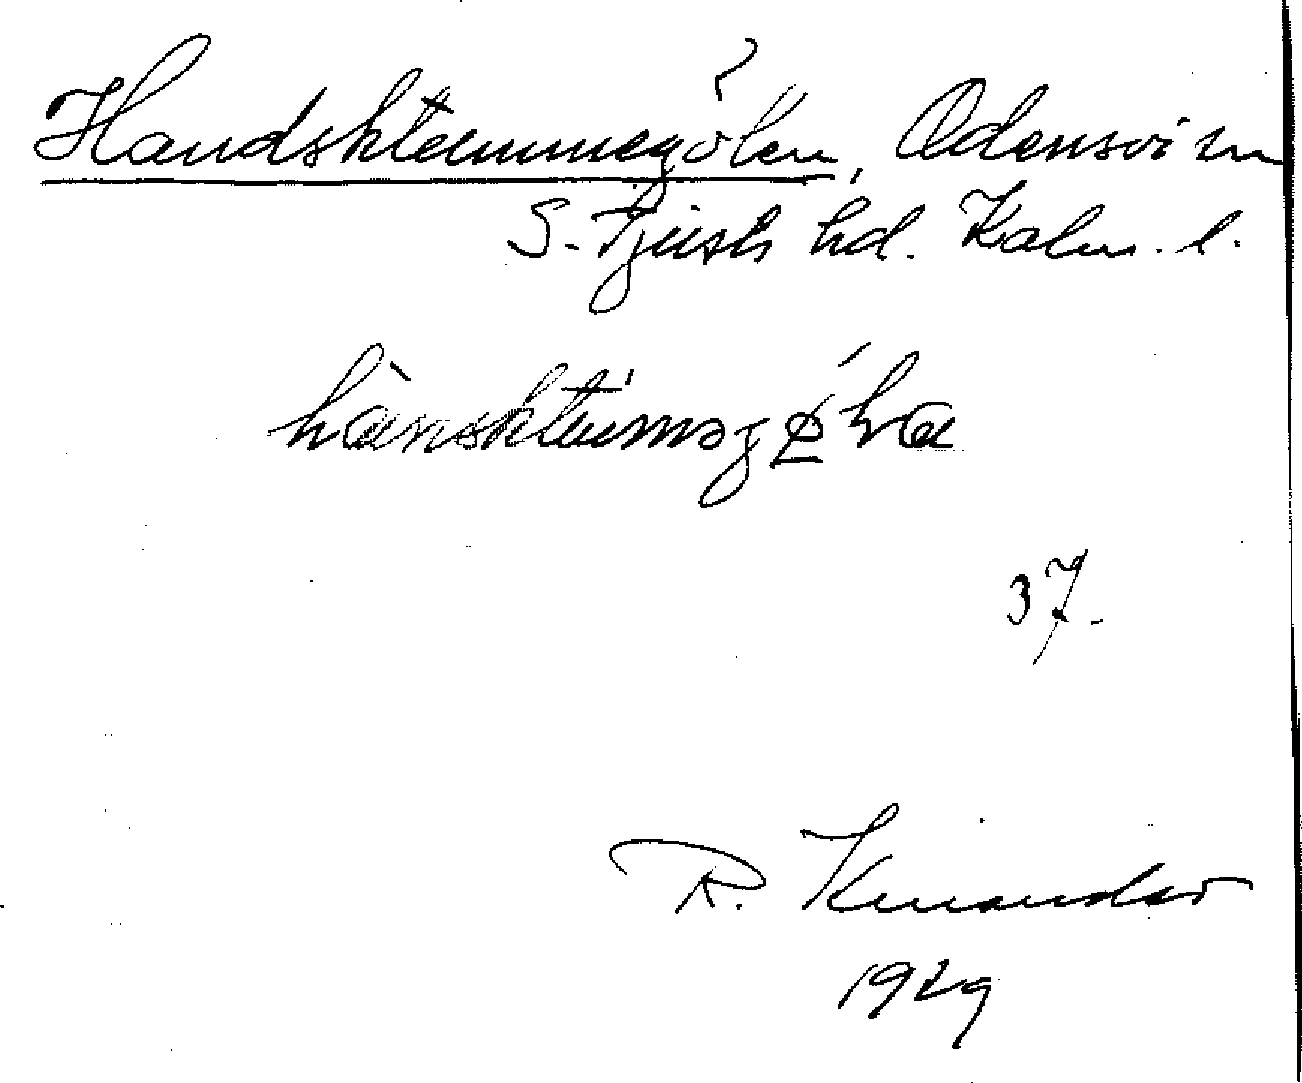 Handsktummegölen, Odensvi sn
S. Tjusts hd. Kalm. l.
37.
R. Kinander
1929